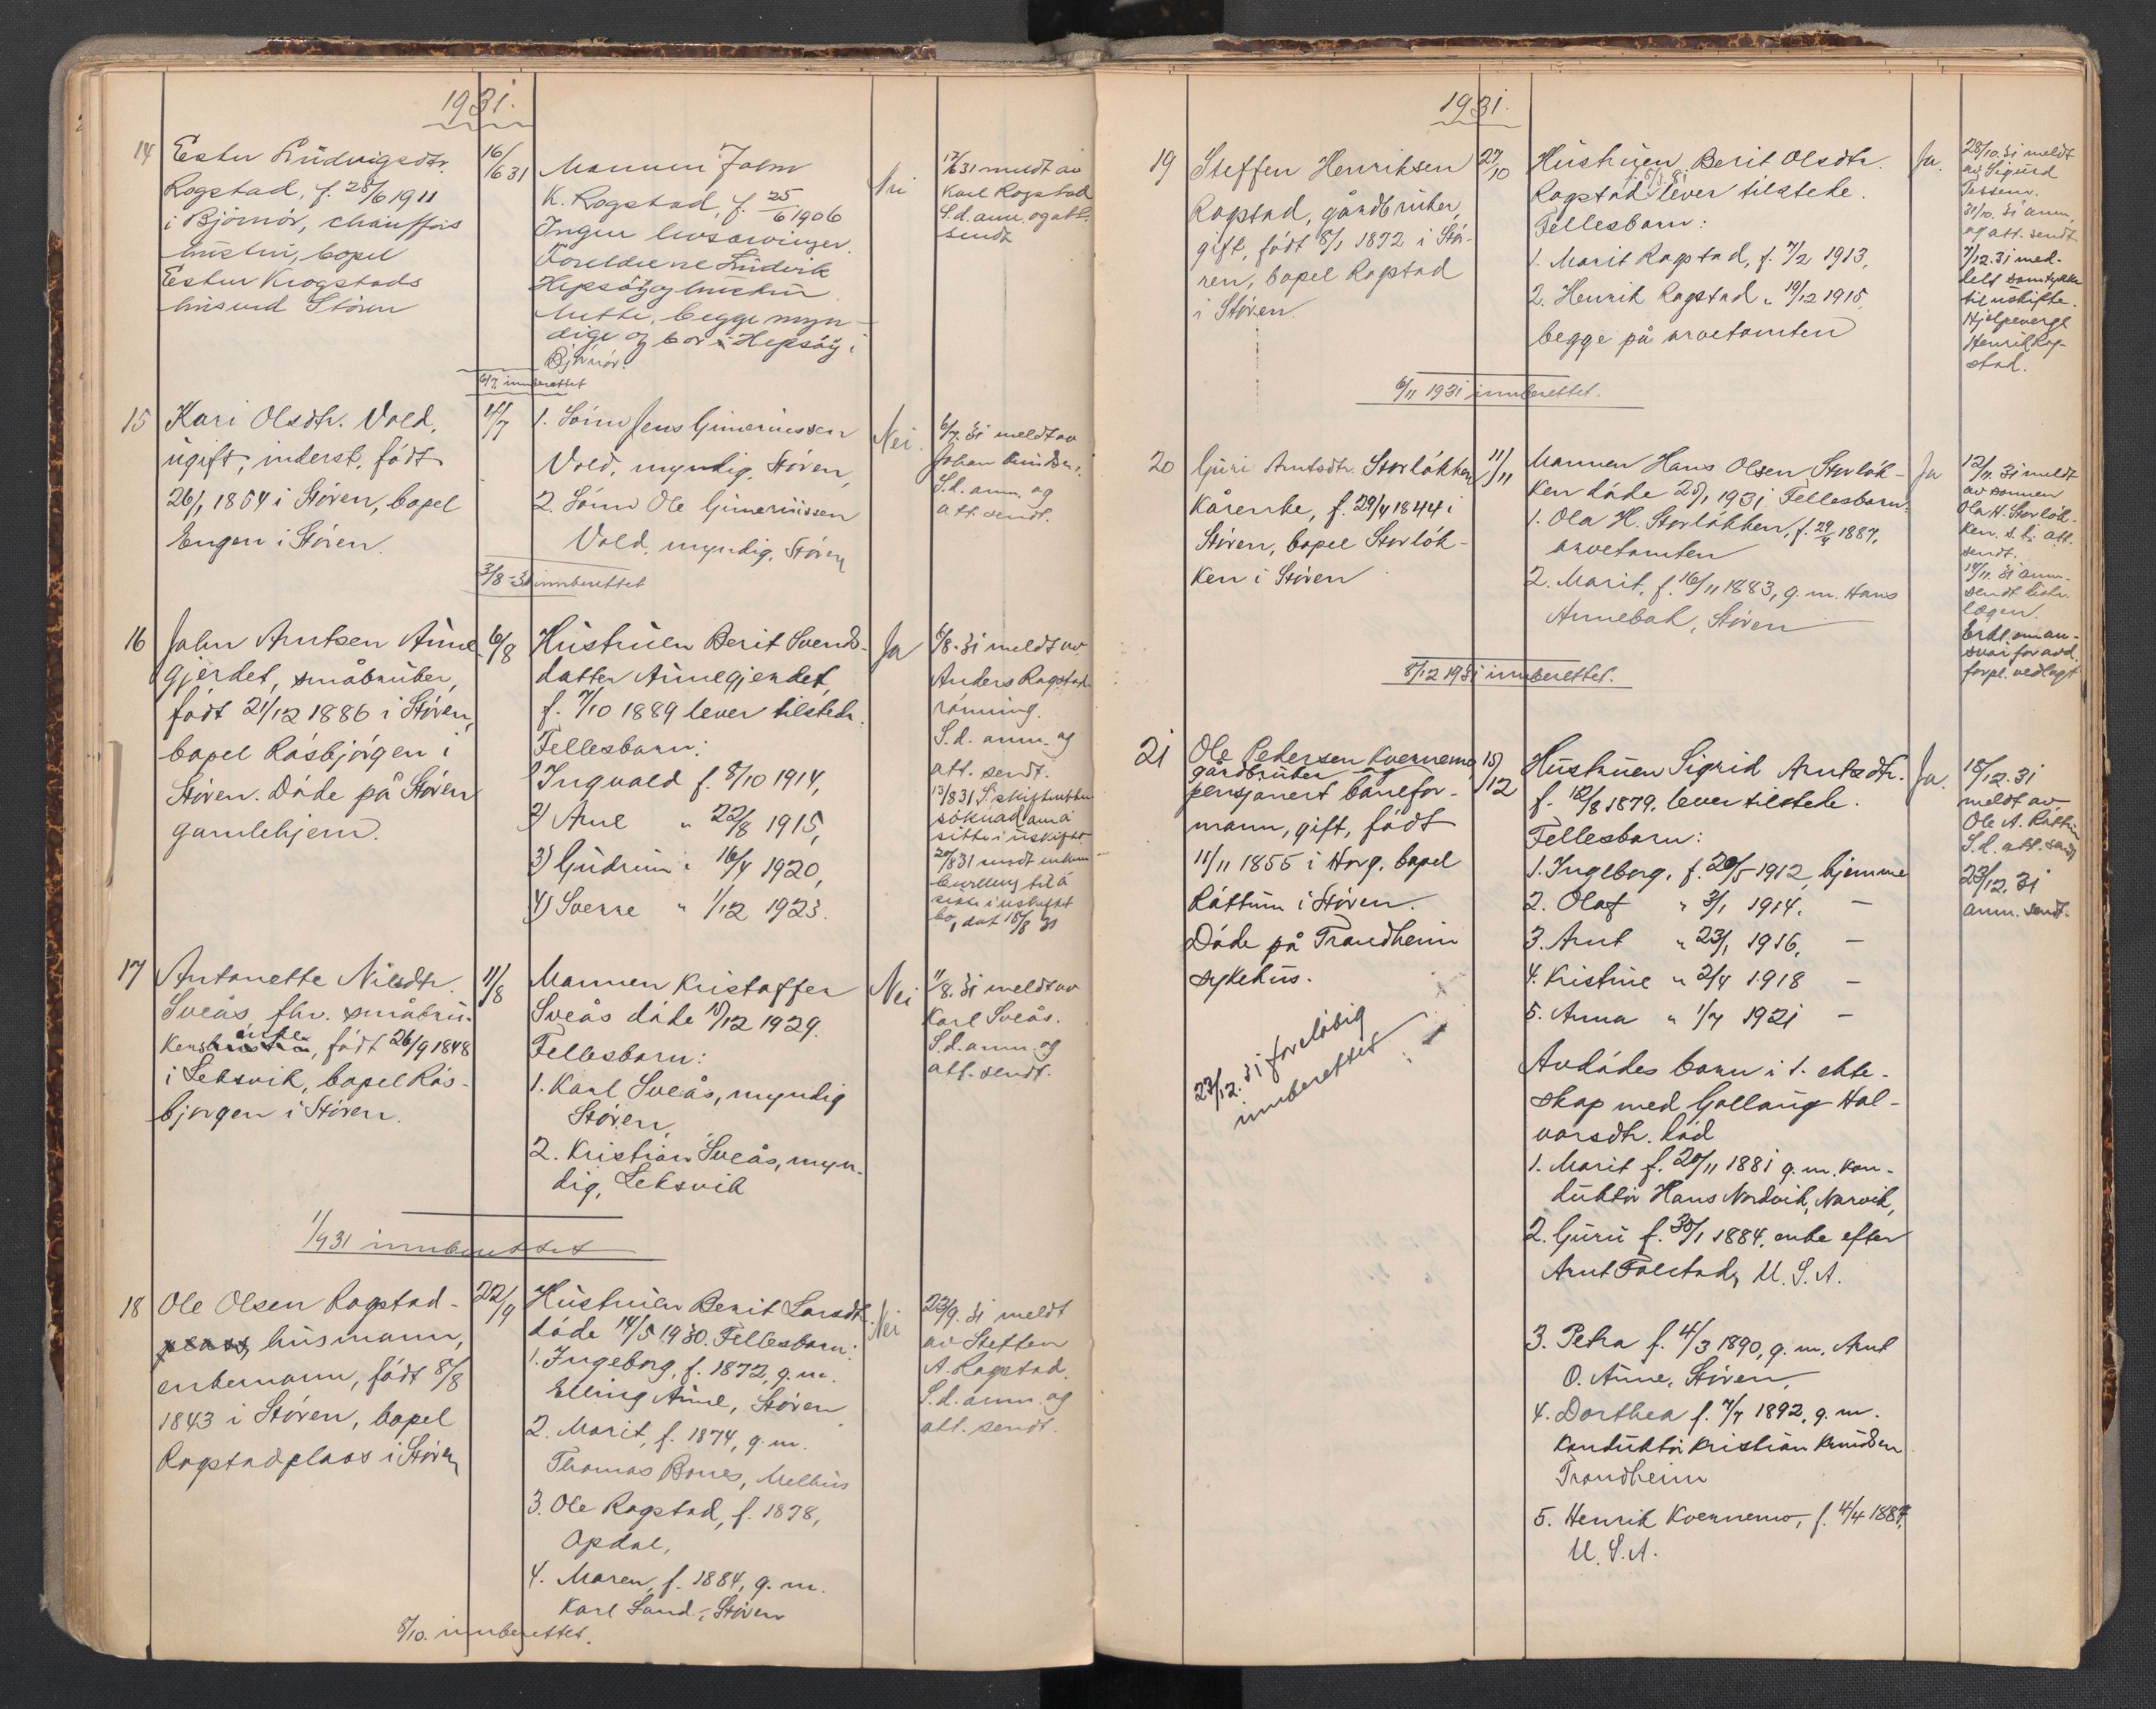 1931.
14
Ester Ludvigsdtr.
Rogstad, f. 28/6 1911
i Bjørnør, chaufførs
hustru, bopel
Ester Krogstads
hus ved Støren
16/6 31
Mannen John
K. Rogstad, f. 25/6 1906
Ingen livsarvinger.
Foreldrene Ludvik
Hepsøy og hustru
begge myn-
dige og bor i Hepsøy i
Bjørnør.
Nei
17/6 31 meldt av
Karl Rogstad
S.d. anm. og att.
sendt
6/7. innberettet
15
Kari Olsdtr. Vold,
ugift, inderst, født
26/1 1854 i Støren, bopel
Engen i Støren.
4/7
1. Sønn Jens Guneriussen
Vold, myndig, Støren,
2. Sønn Ole Guneriussen
Vold, myndig, Støren
Nei.
6/7. 31 meldt av
Johan
S.d. anm. og
att. sendt.
3/8-31 innberettet
16
John Arntsen Aune-
gjerdet, småbruker,
født 21/12 1886 i Støren,
bopel Råsbjørgen i
Støren. Døde på Støren
gamlehjem.
6/8
Hustruen Berit Svends-
datter Aunegjerdet,
f. 7/10 1889 lever tilstede.
Fellesbarn:
1) Ingvald f. 8/10 1914,
2) Arne " 22/8 1915,
3) Gudrun " 16/4 1920,
4) Sverre " 1/12 1923.
Ja
6/8-31 meldt av
Anders Rogstad-
rønning.
S.d. anm. og
att. sendt.
13/8 31
søknad om å
sitte i uskiftet
20/8 31 sendt
til å
sitte i uskiftet
bo, dat 18/8 31
17
Antonette Nilsdtr.
Sveås, fhv. småbru-
kers enke, født 26/9 1848
i Leksvik, bopel Rås-
bjørgen i Støren.
11/8
Mannen Kristoffer
Sveås døde 10/12 1929.
Fellesbarn:
1. Karl Sveås, myndig
Støren,
2. Kristian Sveås, myn-
dig, Leksvik
Nei
11/8. 31 meldt av
Karl Sveås.
S.d. anm. og
att. sendt.
1/9 31 innberettet
18
Ole Olsen Rogstad-
plass, husmann,
enkemann, født 8/8
1843 i Støren, bopel
Rogstadplass i Støren
22/9
Hustruen Berit Larsdtr.
døde 14/5 1930. Fellesbarn:
1. Ingeborg, f. 1872, g.m.
Elling Aune, Støren
2. Marit, f. 1874, g.m.
Thomas Bones, Melhus
3. Ole Rogstad, f. 1878,
Opdal,
4. Maren, f. 1884, g.m.
Karl Sand, Støren
Nei
23/9. 31 meldt
av Steffen
A. Rogstad.
S.d. anm. og
att. sendt.
8/10. innberettet.
1931.
19
Steffen Henriksen
Rogstad, gårdbruker,
gift, født 8/1 1872 i Stø-
ren, bopel Rogstad
i Støren.
27/10
Hustruen Berit Olsdtr.
Rogstad lever tilstede.
Fellesbarn:
1. Marit Rogstad, f. 7/2 1913,
2. Henrik Rogstad " 19/12 1915
begge på arvetomten
Ja.
28/10. 31 meldt
av Sigurd
Tessem.
31/10. 31 anm.
og att. sendt
7/12. 31 med-
delt samtykke
til uskifte.
Hjelpeverge
Henrik Rog-
stad.
6/11 1931 innberettet.
20
Guri Arntsdtr. Storløkken
kårenke, f. 29/4 1844 i
Støren, bopel Storløk-
ken i Støren
11/11
Mannen Hans Olsen Storløk-
ken døde 25/1 1931. Fellesbarn:
1. Ola H. Storløkken, f. 29/4 1887,
arvetomten
2. Marit, f. 16/11 1883, g.m. Hans
Annebak, Støren
Ja
12/11. 31 meldt
av sønnen
Ola H. Storløk-
ken. S.d. att.
sendt.
14/11. 31 anm.
sendt distr.
lægen.
Erkl. om an-
svar for avd.
forpl. vedlagt
8/12 1931 innberettet.
21
Ole Pedersen Kvernemo
gårdbruker og
pensjonert banefor-
mann, gift, født
11/11 1855 i Horg, bopel
Råttum i Støren.
Døde på Trondheim
sykehus.
15/12
Hustruen Sigrid Arntsdtr.
f. 12/8 1879, lever tilstede.
Fellesbarn:
1. Ingeborg, f. 20/5 1912, hjemme
2. Olaf " 3/1 1914, —
3. Arnt " 23/1 1916, —
4. Kristine " 2/4 1918 —
5. Anna " 1/7 1921 —
Avdødes barn i 1. ekte-
skap med Gollaug Hal-
vorsdtr. død
1. Marit f. 20/11 1881 g.m. kon-
duktør Hans Nordvik, Narvik,
2. Guru f. 30/1 1884, enke efter
Arnt Folstad, U.S.A.
3. Petra f. 4/3 1890, g.m. Arnt
O. Aune, Støren,
4. Dorthea f. 7/7 1892, g.m.
konduktør Kristian Knudsen
Trondheim
5. Henrik Kvernemo, f. 4/4 1887,
U.S.A.
Ja.
18/12. 31
meldt av
Ole A. Råttum
S.d. att. sendt
23/12. 31
anm. sendt.
23/12. 31 foreløbig
innberettet